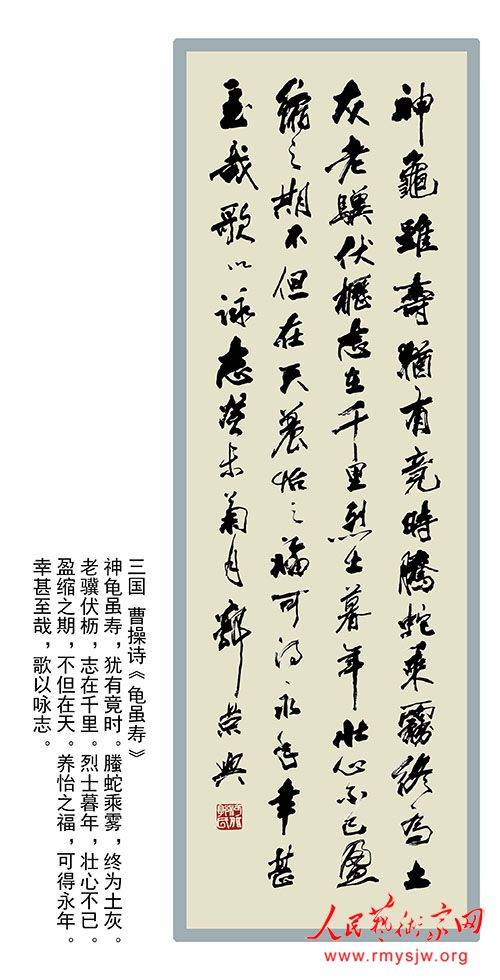 神龜雖壽猶有竟時騰蛇乘霧終為土
灰老驥伏櫪志在千里烈士暮年壯心不已盈
縮之期不但在天養怡之福可得永年幸甚
至哉歌以詠志癸未菊月
三国 曹操诗《龟虽寿》
神龟虽寿，犹有竟时。螣蛇乘雾，终为土灰。
老骥伏枥，志在千里。烈士暮年，壮心不已。
盈缩之期，不但在天。养怡之福，可得永年。
幸甚至哉，歌以咏志。
人民艺术家网
www.rmysjw.org